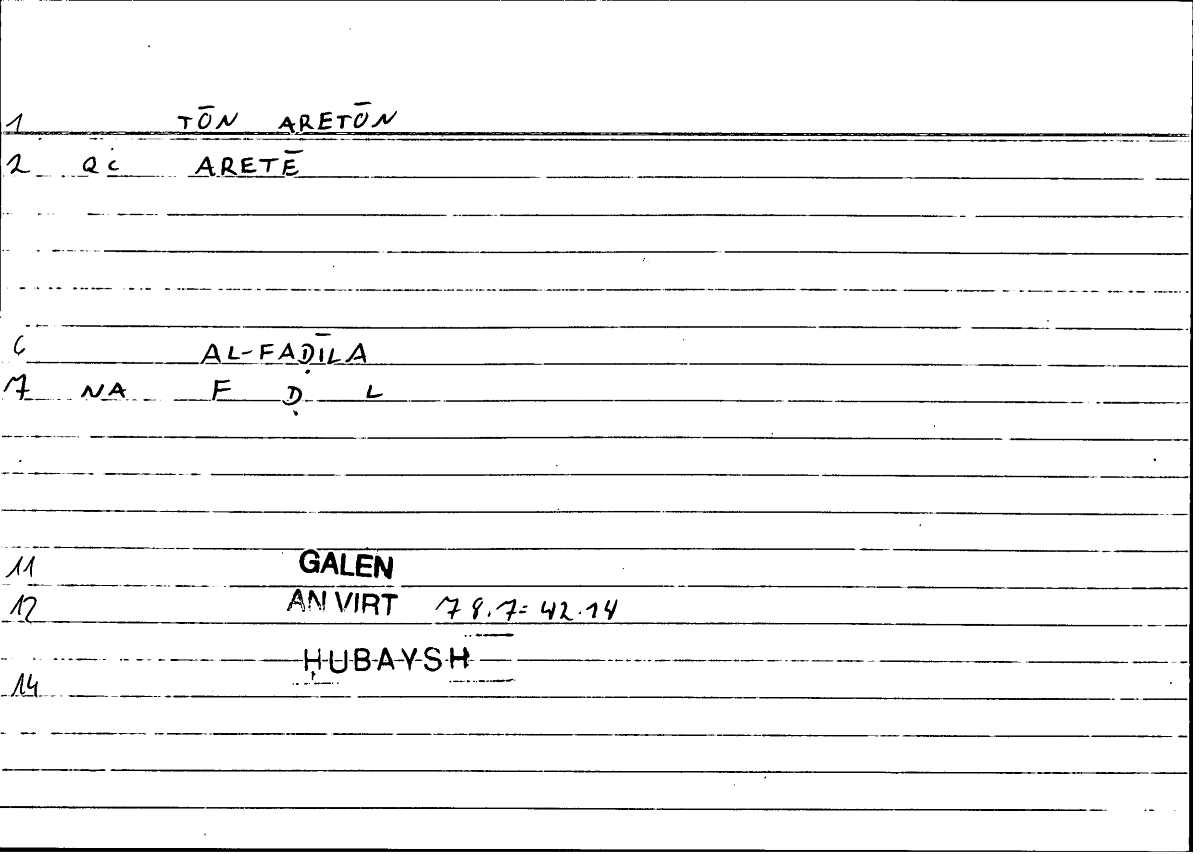 1 TŌN ARETŌN
2 Qc ARETĒ
6 AL-FAḌĪLA
7 NA F Ḍ L
11 GALEN
12 AN VIRT 78.7=42.14
ḤUBAYSH
14